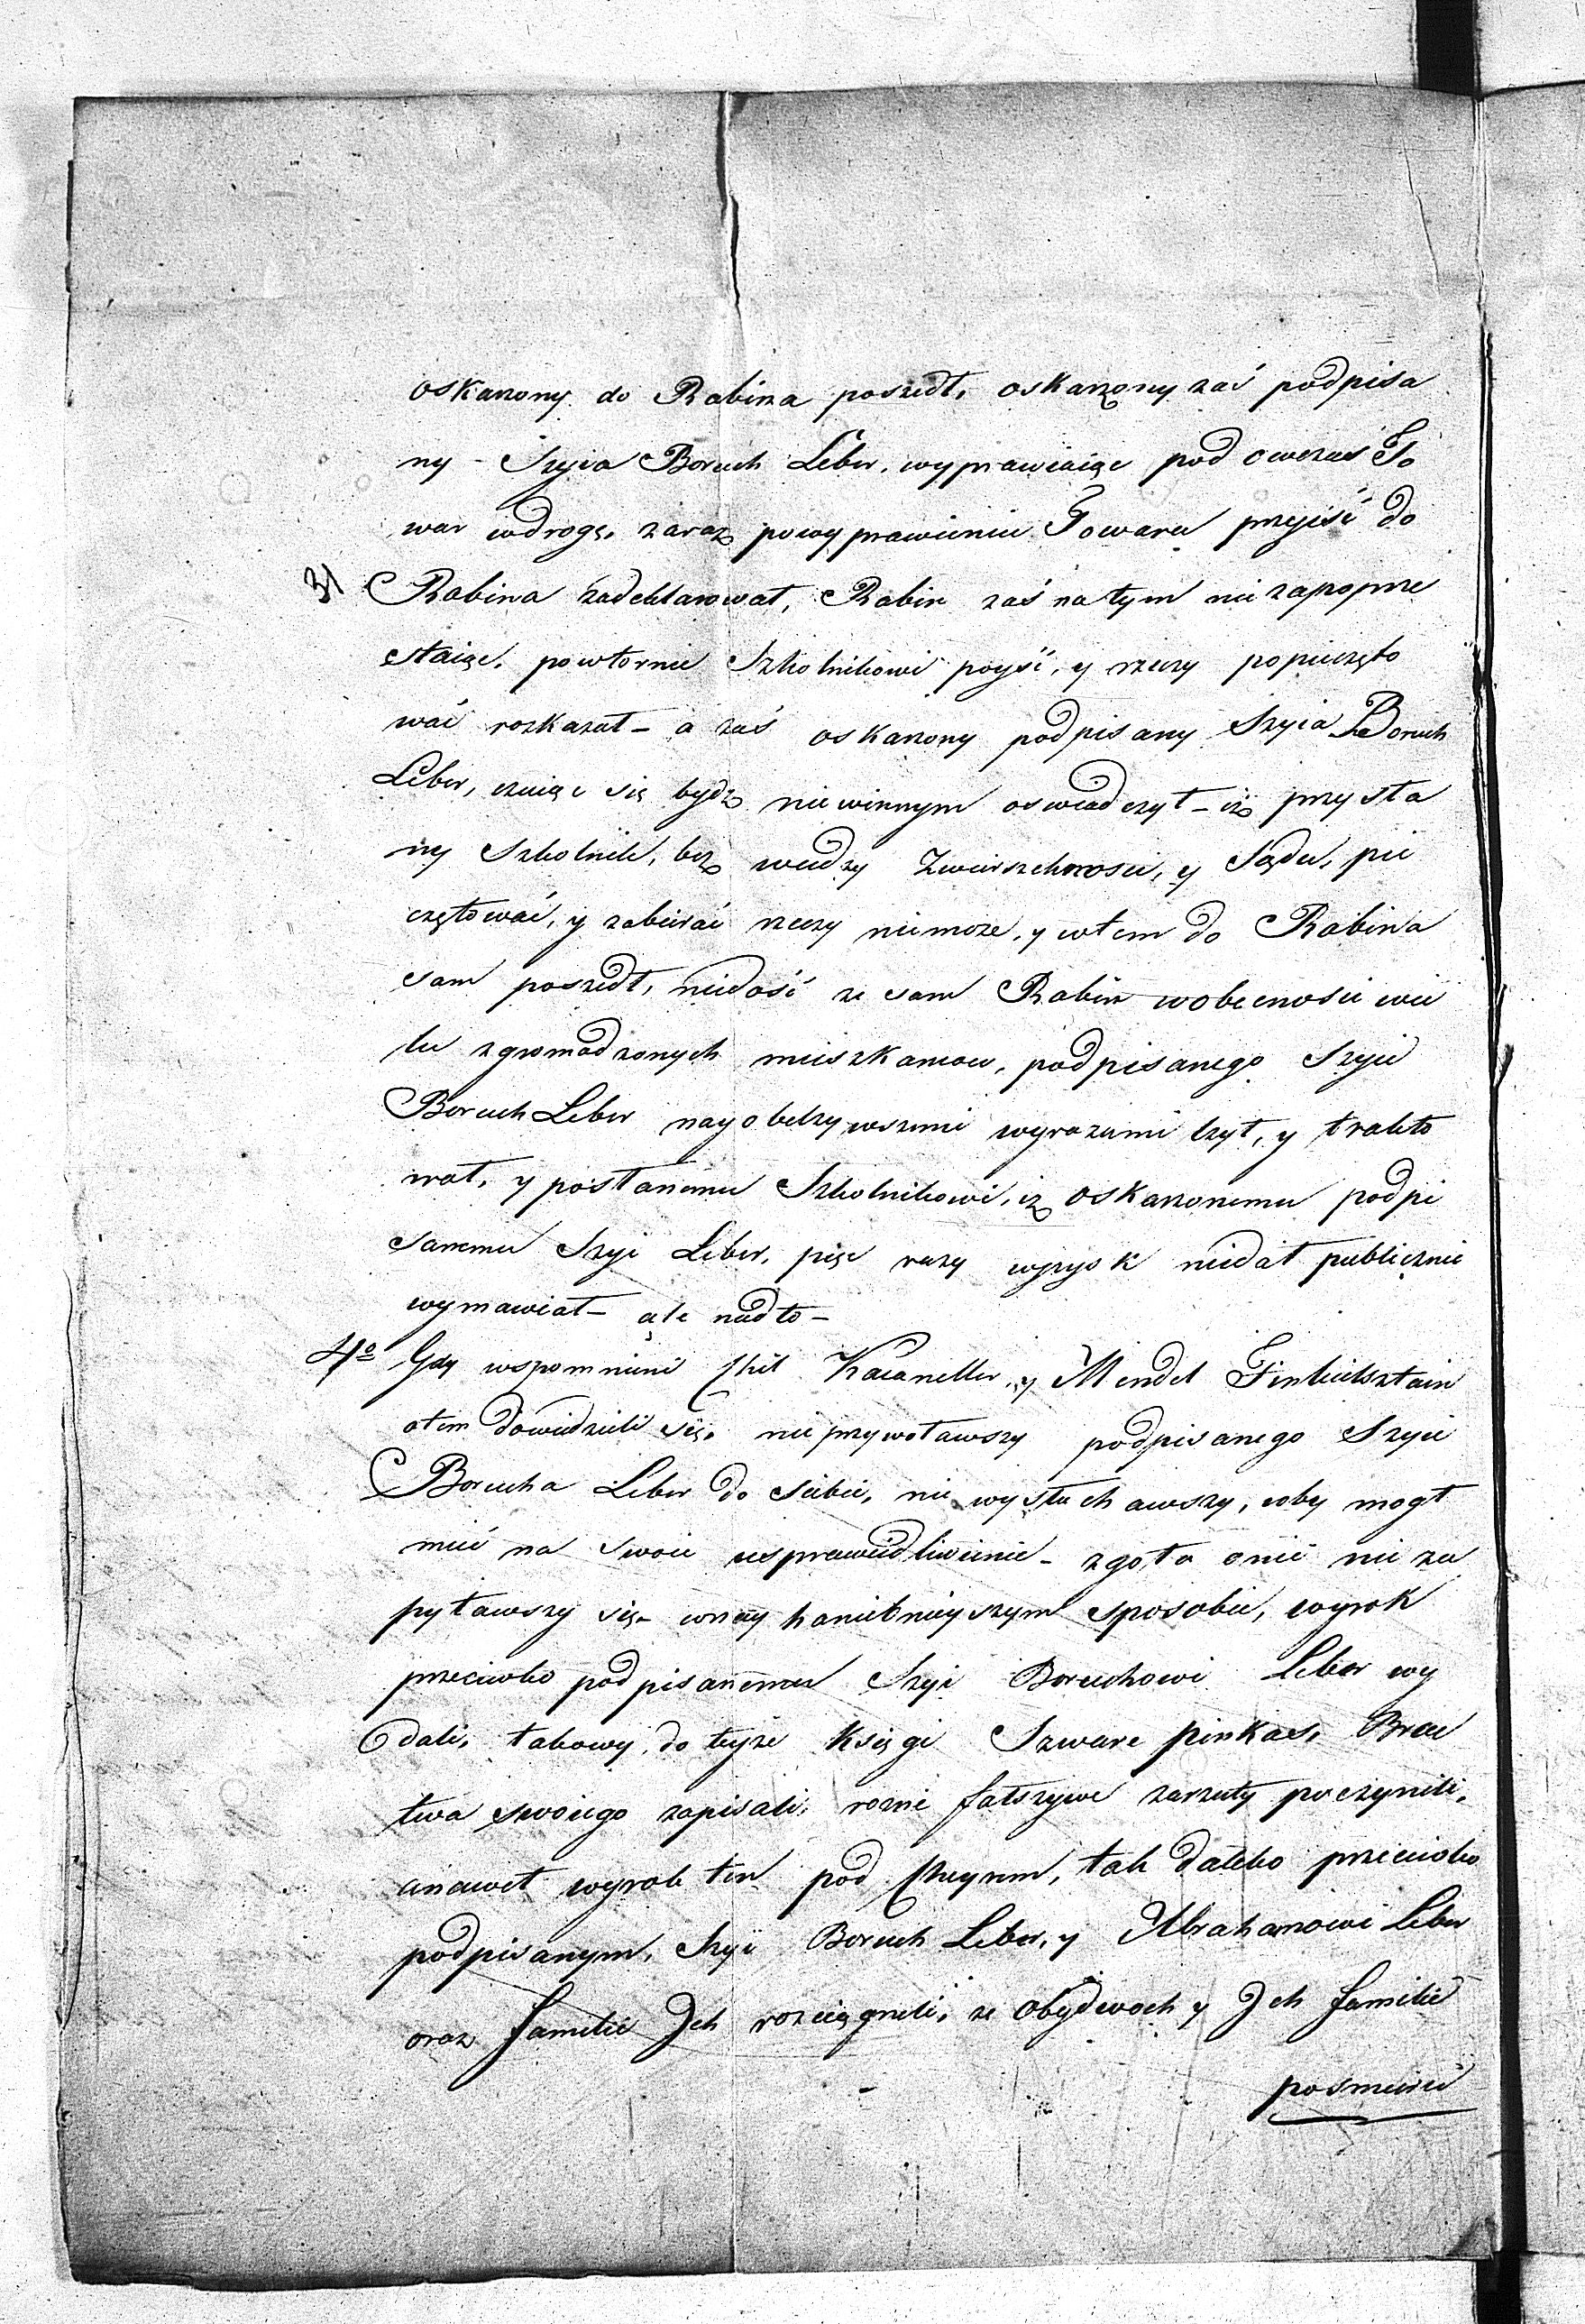 oskarzony do Rabina poszedł, oskarzony zaś podpisa
ny - Szyia Boruch Leber, wyprawiaiąc pod owczas To
war wdrogę, zaraz powyprawieniu Towaru przyiść do
3) Rabina zadeklarował, Rabin zaś natym nie zapoprze
staiąc, powtornie Szkolnikowi poyść, y rzeczy popieczęto
wać rozkazał - a zaś oskarzony podpisany Szyia Boruch
Leber, czuiąc się bydz niewinnym oswiadczył - iż przysła
ny Szkolnik, bez wiedzy Zwierzchnosci, y Sądu, pie
czętować, y zabierać rzeczy niemoze, y wtem do Rabina
sam poszedł, niedość ze sam Rabin wobecnosci wie
lu zgromadzonych mieszkancow, podpisanego Szyie
Boruch Leber nayobelzywszemi wyrazami lzył, y trakto
wał, y posłanemu Szkolnikowi, iż oskarzonemu podpi
sanemu Szyi Leber, pięc razy wpysk niedał publicznie
wymawiał - ale nadto -
4º Gdy wspomnieni Chil y Mendel Finkielsztain
otem dowiedzieli się, nie przywoławszy podpisanego Szyie
Borucha Leber do siebie, nie wysłuchawszy, coby mogł
mieć na swoie usprawiedliwienie - zgoła onie nie za
pytawszy się - wnayhaniebnieyszym sposobie, wyrok
przeciwko podpisanemu Szyi Boruchowi Leber wy
dali, takowy do teyże księgi Szware pinkas, Brac
twa swoiego zapisali, rozne fałszywe zarzuty poczynili,
anawet wyrok ten pod tak daleko przeciwko
podpisanym, Szyi Boruch Leber, y Abrahamowi Leber
oraz familii Jch rozciągneli, ze obydwoch y Jch familie
posmierci